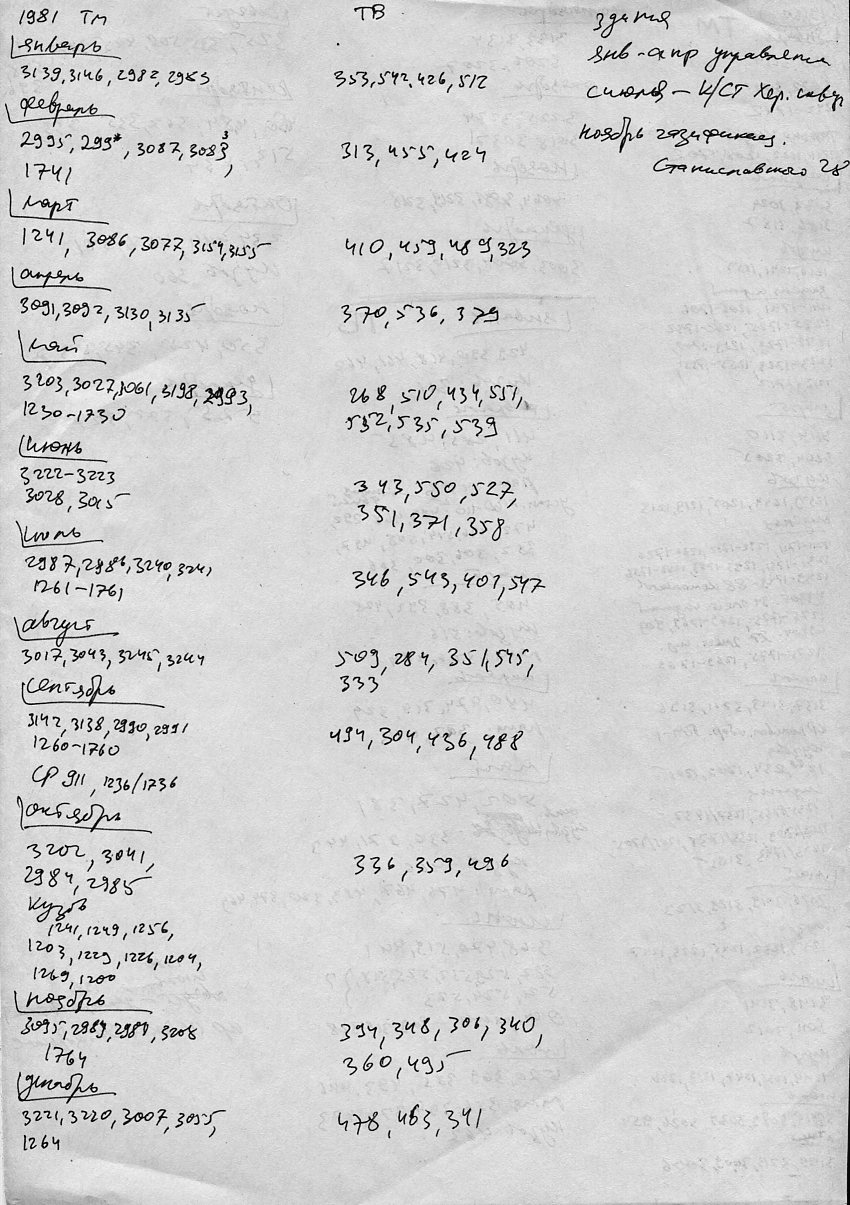 1981 ТМ
ТВ
здания
янв-апр управление
с июля - К/СТ Хер. сквер
ноябрь газификац.
Станиславского 28
январь
3139, 3146, 2982, 2983
353, 542, 426, 512
февраль
2995, 299*, 3087, 3083,
1741
313, 455, 424
март
1241, 3086, 3077, 3154, 3155
410, 459, 489, 323
апрель
3091, 3092, 3130, 3135
370, 536, 379
май
3203, 3027, 3061, 3198, 2993,
1230-1730
268, 510, 434, 551,
532, 535, 539
июнь
3222-3223
3028, 3015
343, 550, 527,
351, 371, 358
июль
2987, 2986, 3240, 3241
1261-1761
346, 543, 401, 547
август
3017, 3043, 3245, 3244
509, 284, 351, 545,
333
сентябрь
3142, 3138, 2990, 2991
1260-1760
СР 911, 1236/1736
494, 304, 436, 488
октябрь
3202, 3041,
2984, 2985
кузов
1241, 1249, 1256,
1203, 1229, 1226, 1204,
1269, 1200
336, 359, 496
ноябрь
3095, 2989, 2988, 3208
1764
394, 348, 306, 340,
360, 495
декабрь
3221, 3220, 3007, 3055,
1264
478, 463, 341